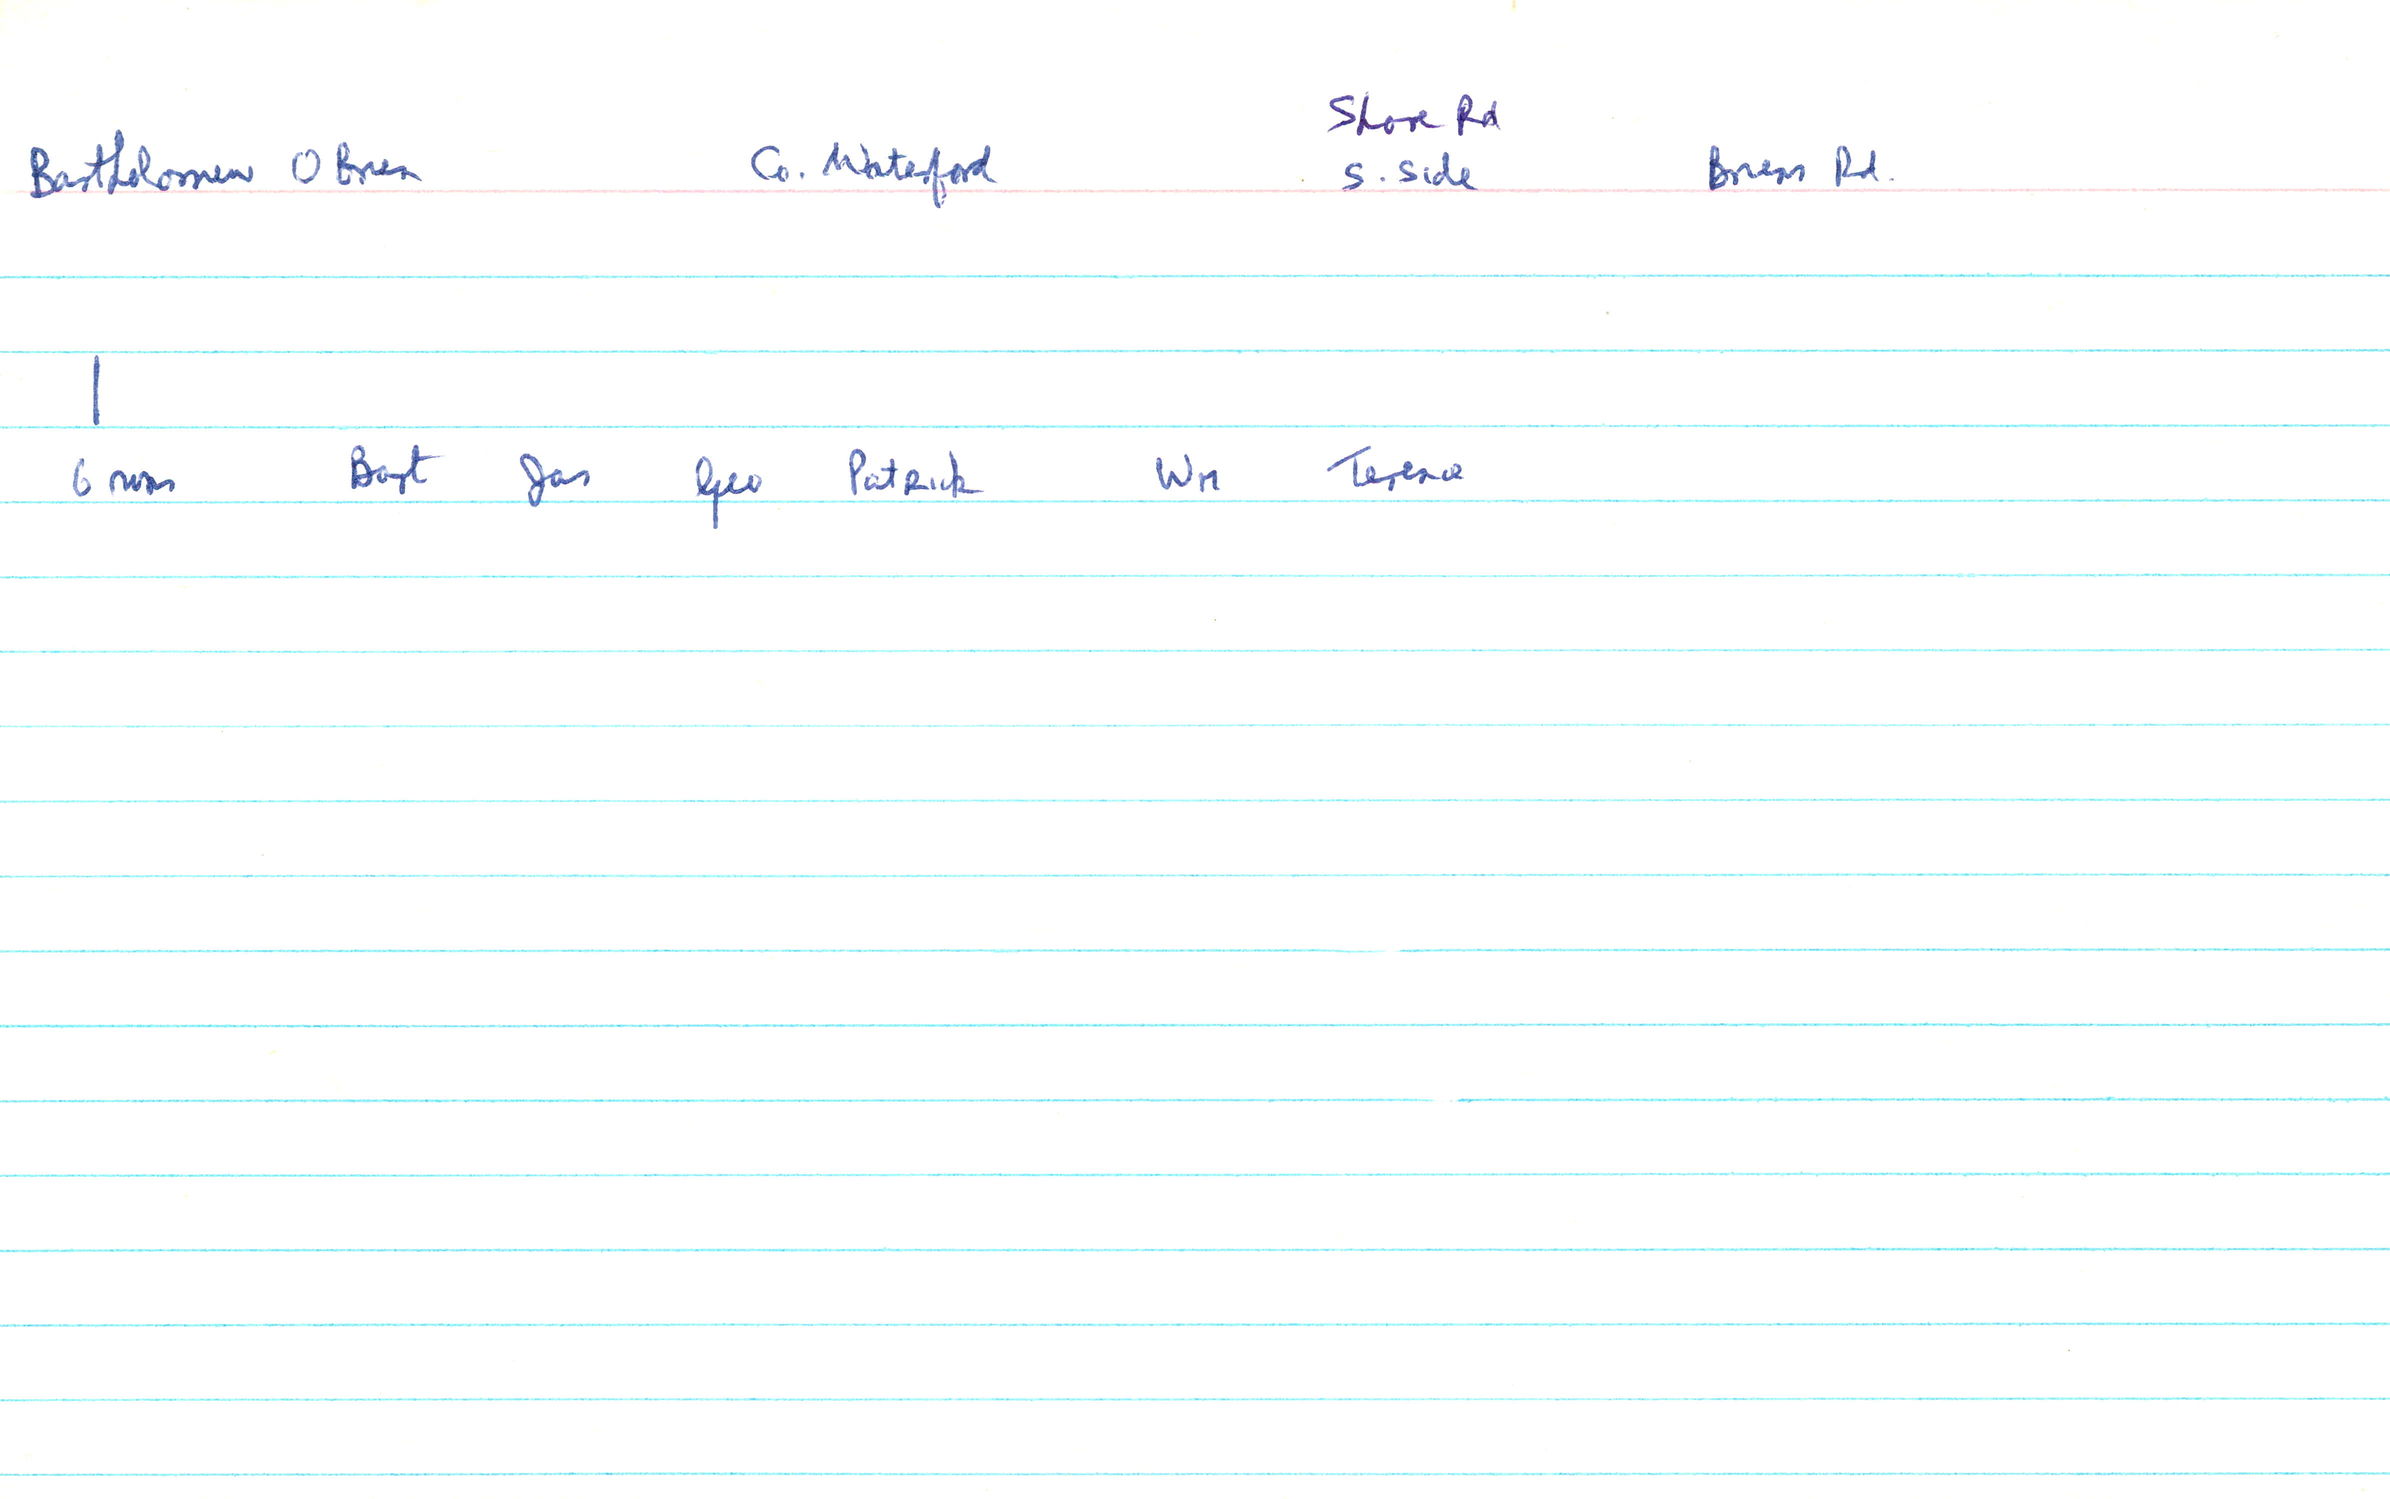 Shore Rd
Bartholomew O Brien Co. Waterford S. Side Briens Rd.
6 sons Bart Jas Geo Patrick Wm Terence